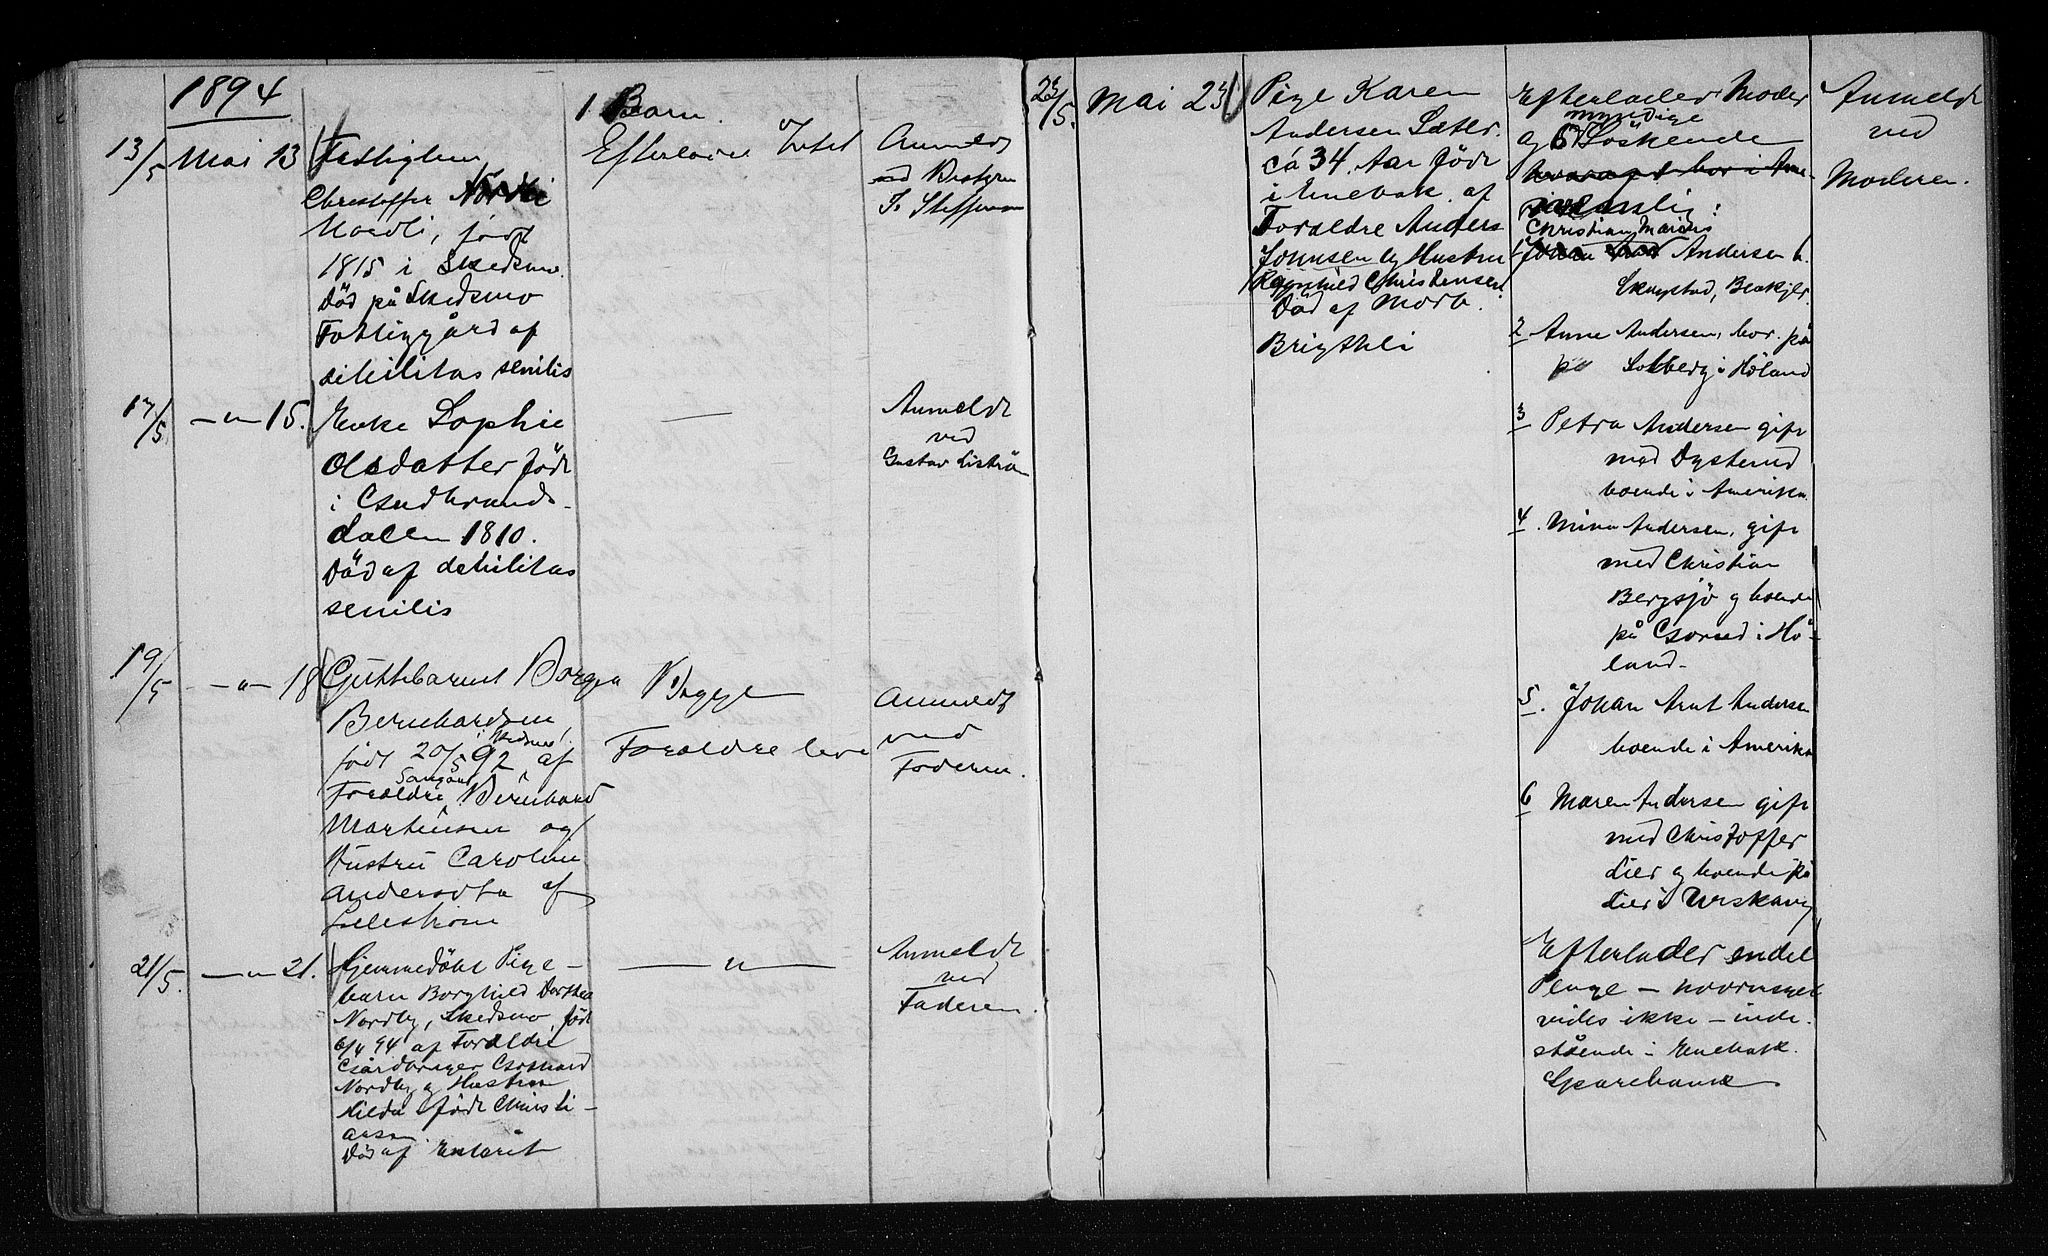 1894
13/5 Mai 13
Fattiglem
Christoffer
Noedli, født
1815 i Skedsmo.
Död på Skedsmo
Fattiggård af
debilitas senilis
1 Barn.
Efterlader Intet
Anmeldt
ved Bestyrer
S. Steffensen
17/5 — " — 15.
Enke Sophie
Olsdatter född
i Gudbrands-
dalen 1810.
Död af debilitas
senilis
—
Anmeldt
ved
Gustav
19/5 — " — 18
Guttebarnet Borger
Bernhardsen
i Skedsmo
født 20/5 92 af
Foraldre Bernhard
Martinsen og
Hustru Caroline
Andersdta af
Lilleström
Begge
Foraldre leve
Anmeldt
ved
Faderen.
21/5. — " — 21.
Hjemmedöbt Pige-
barn Borghild Dorthea
Nordby, Skedsmo, född
6/4 94 af Foraldre
Gårdbruger Gothard
Nordby og Hustru
Hilda född Christi-
ansen
Död af Enterit
— " —
Anmeldt
ved
Faderen.
23/5. Mai 23
Pige Karen
Andersen Sæter.
ca 34 Aar födt
i Enebak af
Foraldre Anders
Johnsen og Hustru
Ragnhild Christensen.
Död af Morb.
Brigthii
Efterlader Moder
myndige
og 6 Söskende
nemlig:
Christian Marius
1 Andersen b.
Skugstad, Blakjer.
2 Anne Andersen, bor på
på Solberg i Höland
3 Petra Andersen gift
med Dysterud
boende i Amerika.
4. Mina Andersen, gift
med Christian
Bergsjö og boende
på Gorsed i Hö-
land-
5. Johan Arnt Andersen
boende i Amerika
6 Maren Andersen gift
med Christoffer
Lier og boende på
Lier i Urskoug
Efterlader endel
Penge — hvormeget
vides ikke — inde-
stående i Enebak
Sparebank
Anmeldt
ved
Moderen.